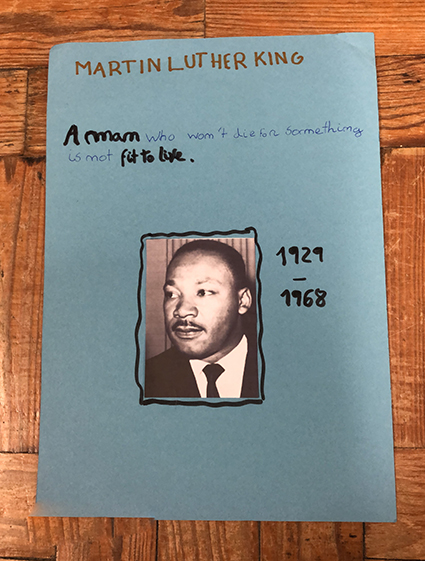 MARTIN LUTHER KING
A man who won't die for something
is not fit to live.
1929
–
1968